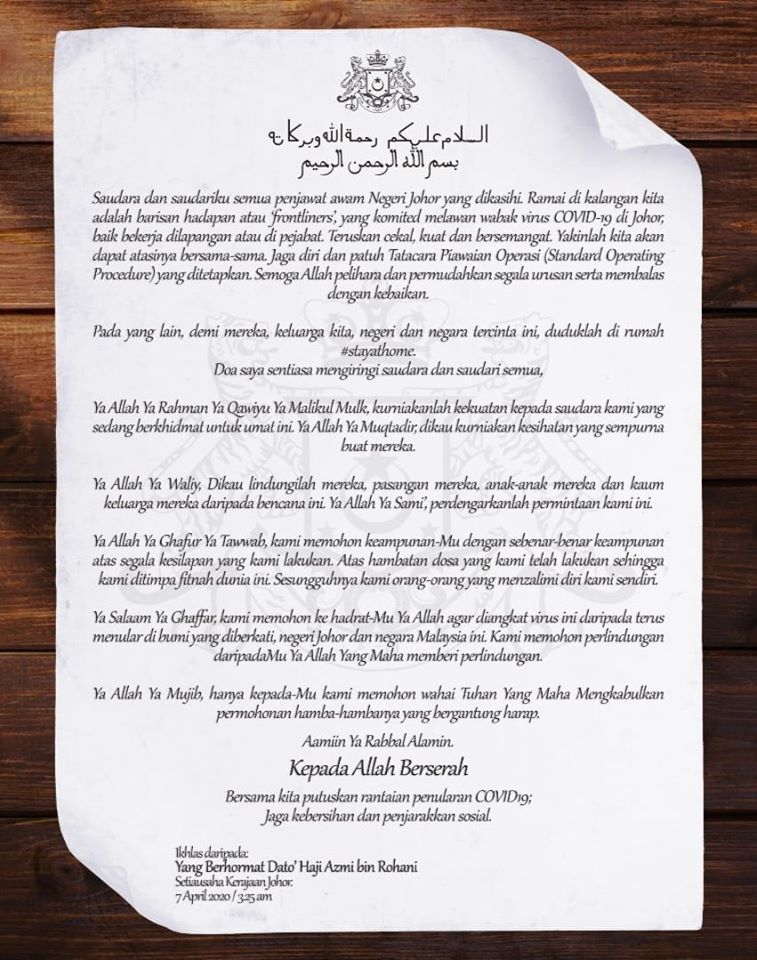 السلام عليكم ورحمة الله وبركاته
بسم الله الرحمن الرحيم
Saudara dan saudariku semua penjawat awam Negeri Johor yang dikasihi. Ramai di kalangan kita
adalah barisan hadapan atau 'frontliners', yang komited melawan wabak virus COVID-19 di Johor,
baik bekerja dilapangan atau di pejabat. Teruskan cekal, kuat dan bersemangat. Yakinlah kita akan
dapat atasinya bersama-sama. Jaga diri dan patuh Tatacara Piawaian Operasi (Standard Operating
Procedure) yang ditetapkan. Semoga Allah pelihara dan permudahkan segala urusan serta membalas
dengan kebaikan.
Pada yang lain, demi mereka, keluarga kita, negeri dan negara tercinta ini, duduklah di rumah
#stayathome.
Doa saya sentiasa mengiringi saudara dan saudari semua,
Ya Allah Ya Rahman Ya Qawiyu Ya Malikul Mulk, kurniakanlah kekuatan kepada saudara kami yang
sedang berkhidmat untuk umat ini. Ya Allah Ya Muqtadir, dikau kurniakan kesihatan yang sempurna
buat mereka.
Ya Allah Ya Waliy, Dikau lindungilah mereka, pasangan mereka, anak-anak mereka dan kaum
keluarga mereka daripada bencana ini. Ya Allah Ya Sami', perdengarkanlah permintaan kami ini.
Ya Allah Ya Ghafur Ya Tawwab, kami memohon keampunan-Mu dengan sebenar-benar keampunan
atas segala kesilapan yang kami lakukan. Atas hambatan dosa yang kami telah lakukan sehingga
kami ditimpa fitnah dunia ini. Sesungguhnya kami orang-orang yang menzalimi diri kami sendiri.
Ya Salaam Ya Ghaffar, kami memohon ke hadrat-Mu Ya Allah agar diangkat virus ini daripada terus
menular di bumi yang diberkati, negeri Johor dan negara Malaysia ini. Kami memohon perlindungan
daripadaMu Ya Allah Yang Maha memberi perlindungan.
Ya Allah Ya Mujib, hanya kepada-Mu kami memohon wahai Tuhan Yang Maha Mengkabulkan
permohonan hamba-hambanya yang bergantung harap.
Aamiin Ya Rabbal Alamin.
Kepada Allah Berserah
Bersama kita putuskan rantaian penularan COVID19;
Jaga kebersihan dan penjarakkan sosial.
Ikhlas daripada:
Yang Berhormat Dato' Haji Azmi bin Rohani
Setiausaha Kerajaan Johor.
7 April 2020 / 3.25 am